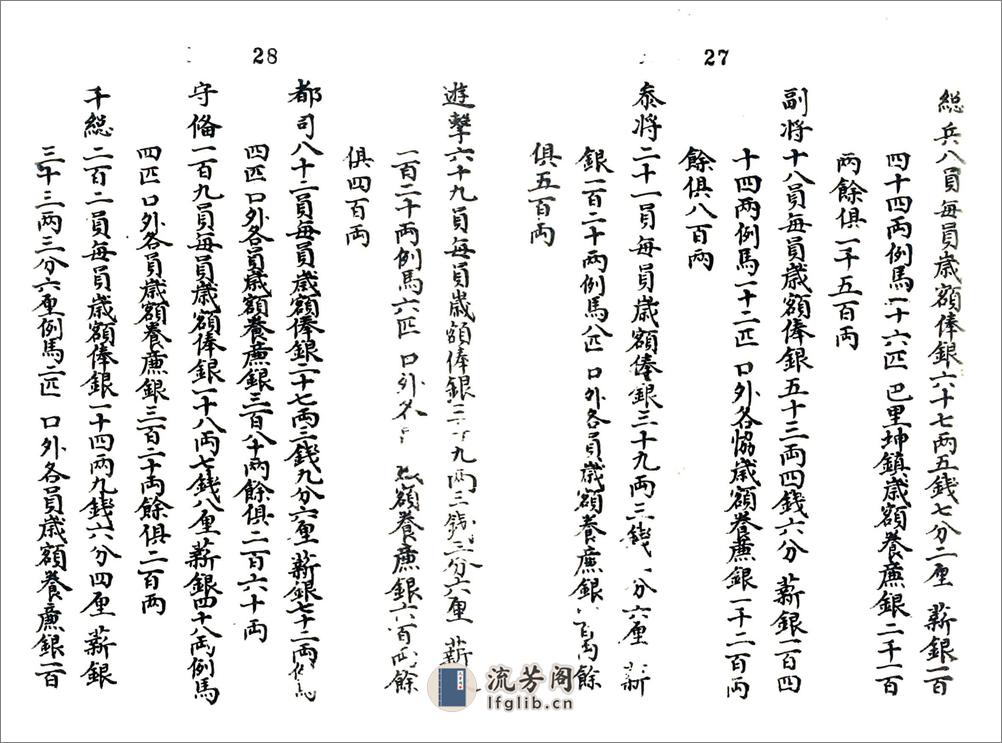 27
総兵八員每員歲額俸銀六十七両五銭七分二厘 薪銀一百
四十四両例馬一十六匹 巴里坤鎮歲額養廉銀二千一百
両餘俱一千五百両
副将十八員每員歲額俸銀五十三両四銭六分 薪銀一百四
十四両例馬一十二匹 口外各協歲額養廉銀一千二百両
餘俱八百両
叅将二十一員每員歲額俸銀三十九両三銭 分六厘 薪
銀一百二十両例馬八匹 口外各員歲額養廉銀 百両餘
俱五百両
28
遊擊六十九員每員歲額俸銀三十九両三銭三分六厘 薪
一百二十両例馬六匹 口外各 額養廉銀六百両餘
俱四百両
都司八十二員每員歲額俸銀二十七両三銭九分六厘 薪銀七十二両例馬
四匹 口外各員歲額養廉銀三百八十両餘俱二百六十両
守俻一百九員每員歲額俸銀一十八両七銭八厘 薪銀四十八両例馬
四匹 口外各員歲額養廉銀三百二十両餘俱二百両
千総二百二員每員歲額俸銀一十四両九銭六分四厘 薪銀
三十三両三分六厘例馬二匹 口外各員歲額養廉銀一百
流芳阁
lfglib.cn